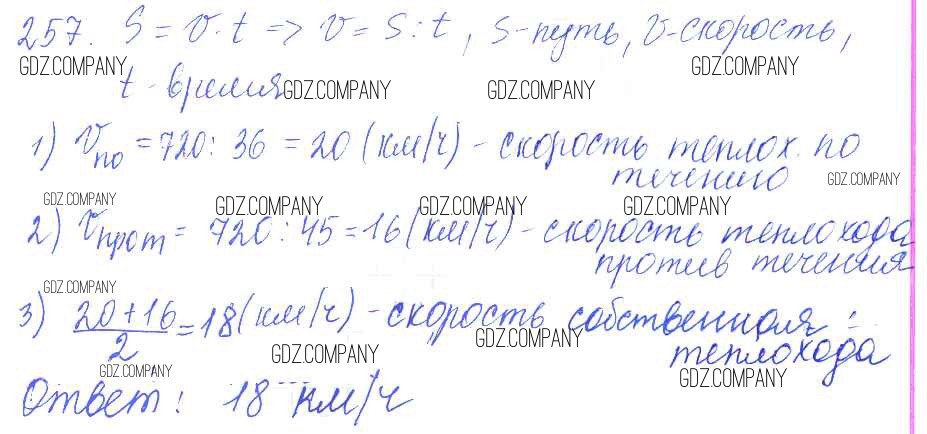 257. S = v · t => v = S : t, S-путь, v-скорость,
GDZ.COMPANY GDZ.COMPANY
t - время GDZ.COMPANY GDZ.COMPANY
1) v по = 720 : 36 = 20 (км/ч) - скорость теплох. по
течению GDZ.COMPANY
GDZ.COMPANY GDZ.COMPANY GDZ.COMPANY GDZ.COMPANY
2) v прот = 720 : 45 = 16 (км/ч) - скорость теплохода
против течения
GDZ.COMPANY
3) 20 + 16 / 2 = 18 (км/ч) - скорость собственная
GDZ.COMPANY GDZ.COMPANY
теплохода
GDZ.COMPANY GDZ.COMPANY
Ответ: 18 км/ч